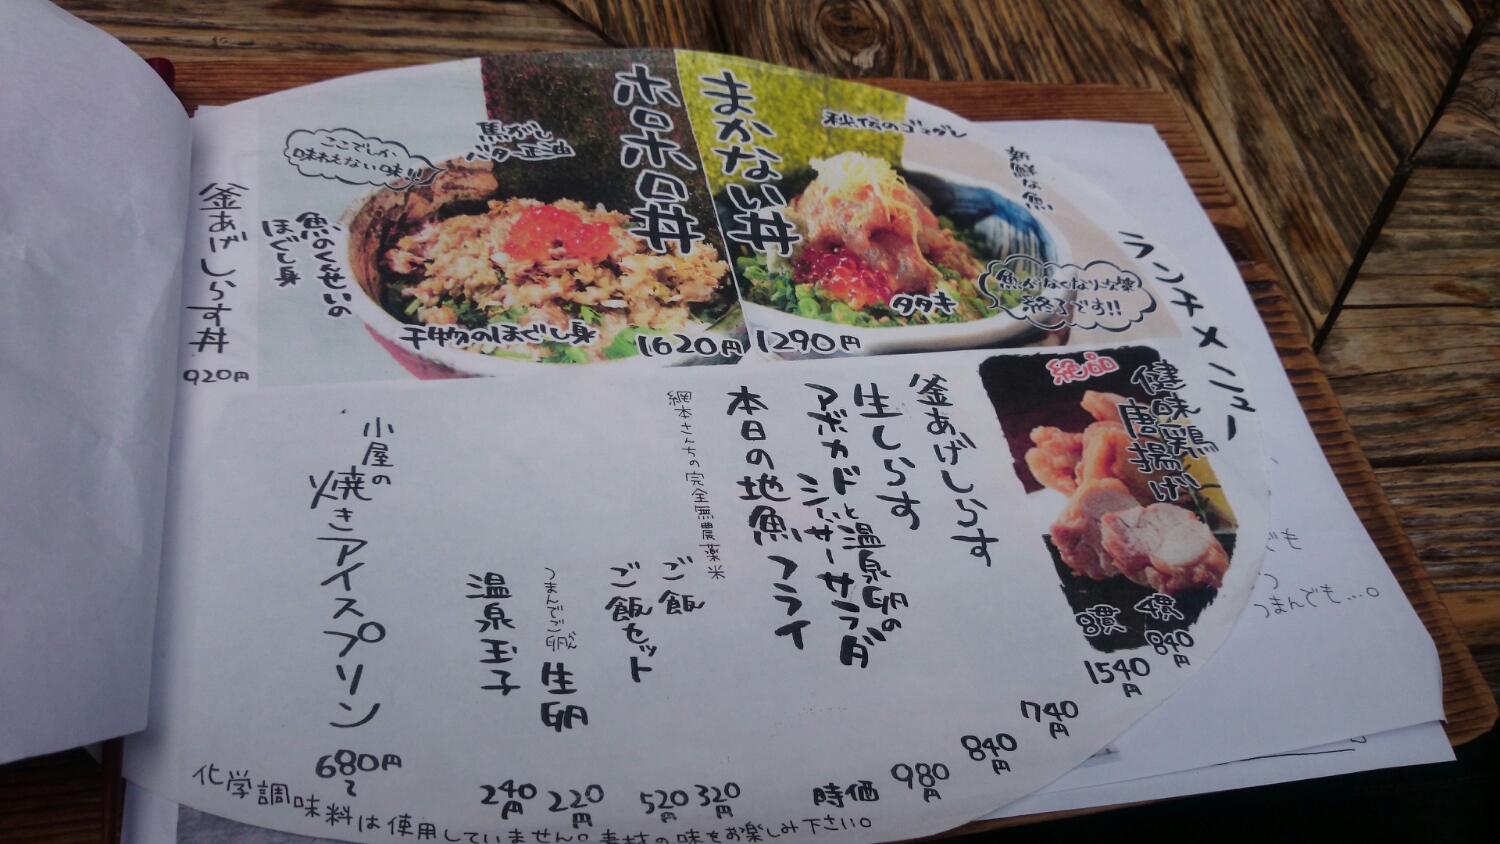 ランチメニュー
まかない丼
秘伝のゴマダレ
新鮮な魚
タタキ
魚がなくなり次第
終了です!!
1290円
ホロホロ丼
焦がし
バター正油
ここでしか
味わえない味!!
魚のくんせいの
ほぐし身
干物のほぐし身
1620円
釜あげしらす丼
920円
絶品
健味鶏
唐揚げ
4貫
840円
8貫
1540円
釜あげしらす
740円
生しらす
840円
アボカドと温泉卵の
シーザーサラダ
980円
本日の地魚フライ
時価
網本さんちの完全無農薬米
ご飯
320円
ご飯セット
520円
つまんでご卵
らん
生卵
220円
温泉玉子
240円
小屋の
焼きアイスプリン
680円
化学調味料は使用していません。素材の味をお楽しみ下さい。
でも
つ
つまんでも…。